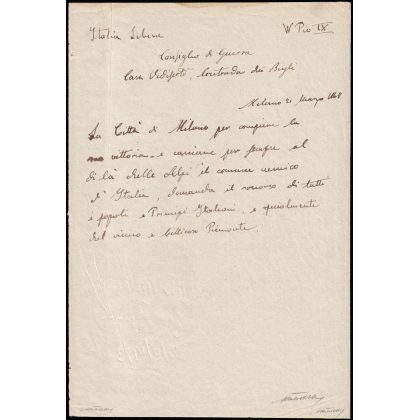 Italia Libera W Pio IX
Consiglio di Guerra
Casa Vidiserti, Contrada dei Bigli
Milano 21 Marzo 1848
La Città di Milano per compiere la
sua vittoria e cacciare per sempre al
di là delle Alpi il comune nemico
d'Italia, domanda il soccorso di tutti
i popoli e Principi Italiani, e specialmente
del vicino e bellicoso Piemonte.